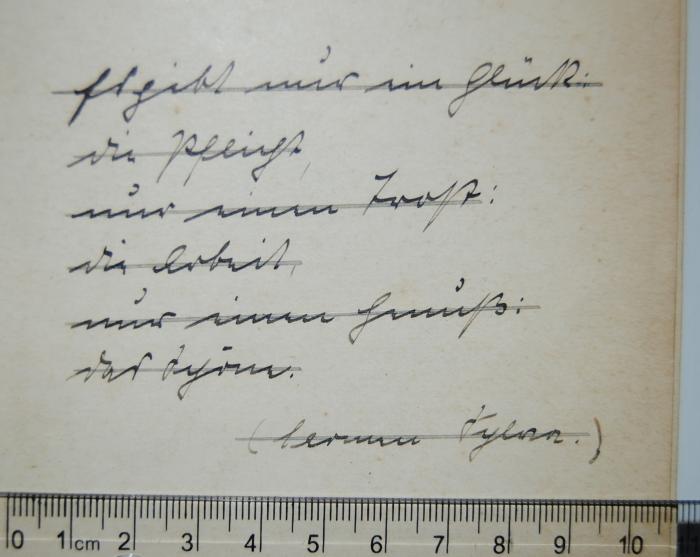 Es gibt nur ein Glück:
die Pflicht,
nur einen Trost:
die Arbeit,
nur einen Genuß:
das Schöne.
(Carmen Sylva.)
0 1cm 2 3 4 5 6 7 8 9 10